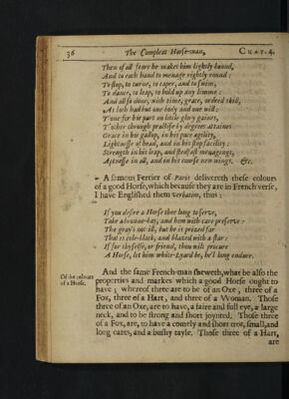 36 The Compleat Horse-man, CHAP. 4.
Then of all soure he makes him lightly bound,
And to each hand to menage rightly round:
To stop, to turne, to caper, and to swim,
To dance, to leap, to hold up any limme:
And all so done, with time, grace, ordered skill,
As both had but one body and one will:
T'one for his part no little glory gaines,
T'other through practise by degrees attaines
Grace in his gallop, in his pace agility,
Lightnesse of head, and in his stop facility:
Strength in his leap, and stedfast menagings,
Aptnesse in all, and in his course new wings. &c.
A famous Ferrier of Paris delivereth these colours
of a good Horse, which because they are in French verse,
I have Englished them verbatim, thus:
If you desire a Horse thee long to serve,
Take a brown-bay, and him with care preserve:
The gray's not ill, but he is prized far
That is cole-black, and blazed with a star:
If for thyselfe, or friend, thou wilt procure
A Horse, let him white-Lyard be, he'l long endure.
Of the colours
of a Horse.
And the same French-man sheweth, what be also the
properties and markes which a good Horse ought to
have; whereof three are to be of an Oxe, three of a
Fox, three of a Hart, and three of a Woman. Those
three of an Oxe, are to have, a faire and full eye, a large
neck, and to be strong and short joynted. Those three
of a Fox, are, to have a comely and short trot, small, and
long eares, and a bushy tayle. Those three of a Hart,
are